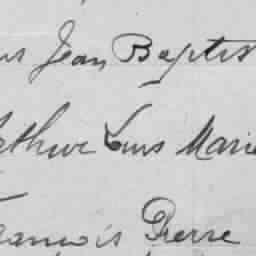 Jean Baptis
Arthur Louis Marie
François Pierre